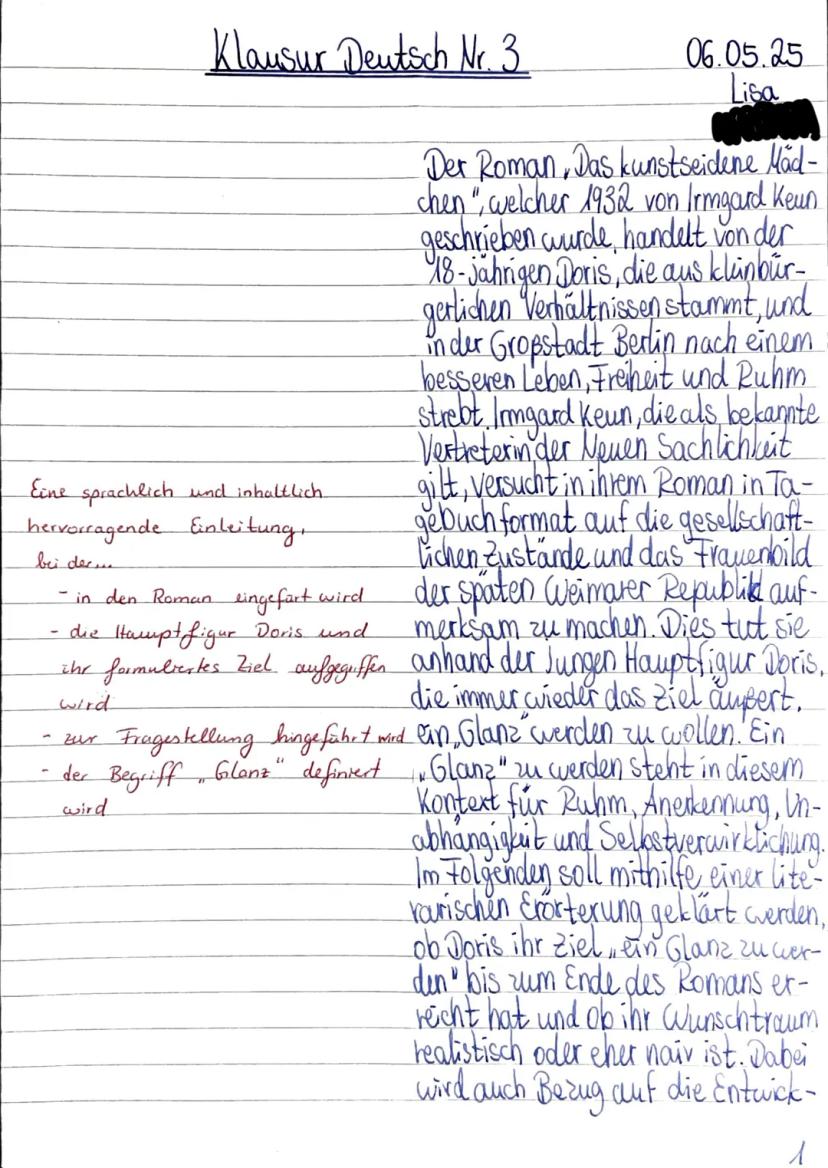 Klausur Deutsch Nr. 3
06.05.25
Lisa
Der Roman „Das kunstseidene Mäd-
chen", welcher 1932 von Irmgard Keun
geschrieben wurde, handelt von der
18-jährigen Doris, die aus kleinbür-
gerlichen Verhältnissen stammt, und
in der Großstadt Berlin nach einem
besseren Leben, Freiheit und Ruhm
strebt. Irmgard Keun, die als bekannte
Vertreterin der Neuen Sachlichkeit
gilt, versucht in ihrem Roman in Ta-
gebuchformat auf die gesellschaft-
lichen Zustände und das Frauenbild
der späten Weimarer Republik auf-
merksam zu machen. Dies tut sie
anhand der jungen Hauptfigur Doris,
die immer wieder das Ziel äußert,
ein „Glanz" werden zu wollen. Ein
„Glanz" zu werden steht in diesem
Kontext für Ruhm, Anerkennung, Un-
abhängigkeit und Selbstverwirklichung.
Im Folgenden soll mithilfe einer lite-
rarischen Erörterung geklärt werden,
ob Doris ihr Ziel „ein Glanz zu wer-
den" bis zum Ende des Romans er-
reicht hat und ob ihr Wunschtraum
realistisch oder eher naiv ist. Dabei
wird auch Bezug auf die Entwick-
Eine sprachlich und inhaltlich
hervorragende Einleitung,
bei der...
- in den Roman eingefärt wird
- die Hauptfigur Doris und
ihr formuliertes Ziel aufgegriffen
wird
- zur Fragestellung hingeführt wird
- der Begriff „Glanz" definiert
wird
1